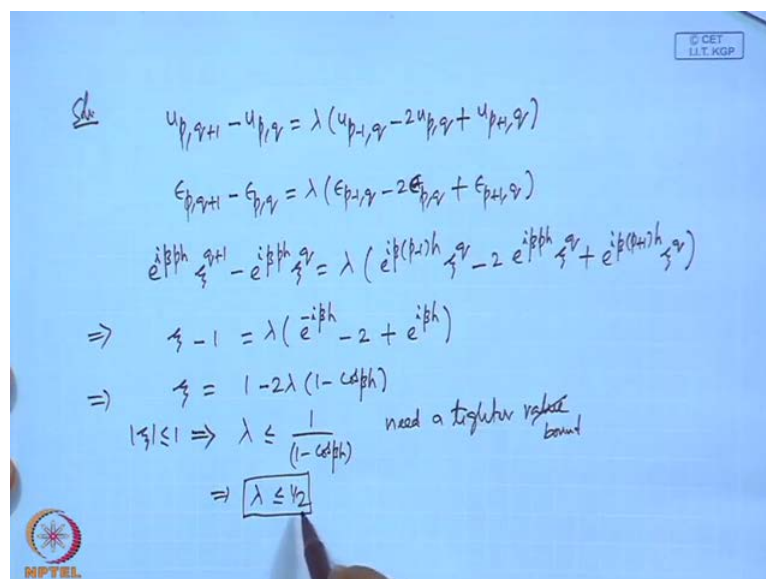 © CET
I.I.T. KGP
Soln
u_{p,q+1} - u_{p,q} = λ(u_{p-1,q} - 2u_{p,q} + u_{p+1,q})
ϵ_{p,q+1} - ϵ_{p,q} = λ(ϵ_{p-1,q} - 2ϵ_{p,q} + ϵ_{p+1,q})
e^{iβph} ξ^{q+1} - e^{iβph} ξ^q = λ(e^{iβ(p-1)h} ξ^q - 2 e^{iβph} ξ^q + e^{iβ(p+1)h} ξ^q)
⇒ ξ - 1 = λ(e^{-iβh} - 2 + e^{iβh})
⇒ ξ = 1 - 2λ(1 - cosβh)
|ξ| ≤ 1 ⇒ λ ≤ 1/(1 - cosβh) need a tighter
bound
⇒ λ ≤ 1/2
NPTEL